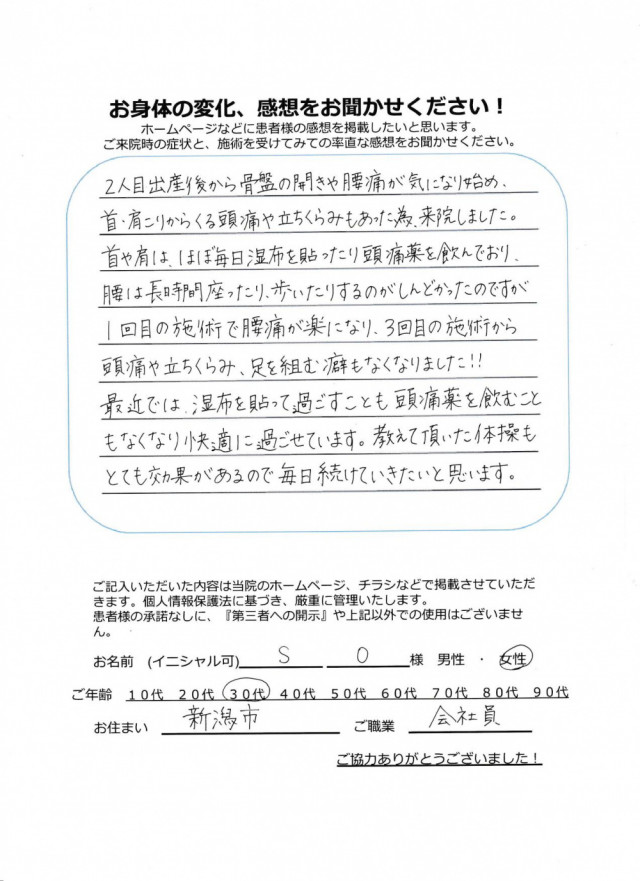 お身体の変化、感想をお聞かせください！
ホームページなどに患者様の感想を掲載したいと思います。
ご来院時の症状と、施術を受けてみての率直な感想をお聞かせください。
2人目出産後から骨盤の開きや腰痛が気になり始め、
首・肩こりからくる頭痛や立ちくらみもあった為、来院しました。
首や肩は、ほぼ毎日湿布を貼ったり頭痛薬を飲んでおり、
腰は長時間座ったり、歩いたりするのがしんどかったのですが
1回目の施術で腰痛が楽になり、3回目の施術から
頭痛や立ちくらみ、足を組む癖もなくなりました!!
最近では、湿布を貼って過ごすことも頭痛薬を飲むこと
もなくなり快適に過ごせています。教えて頂いた体操も
とても効果があるので毎日続けていきたいと思います。
ご記入いただいた内容は当院のホームページ、チラシなどで掲載させていただ
きます。個人情報保護法に基づき、厳重に管理いたします。
患者様の承諾なしに、『第三者への開示』や上記以外での使用はございませ
ん。
お名前 (イニシャル可) S O 様 男性 ・ 女性
ご年齢 10代 20代 30代 40代 50代 60代 70代 80代 90代
お住まい 新潟市 ご職業 会社員
ご協力ありがとうございました！